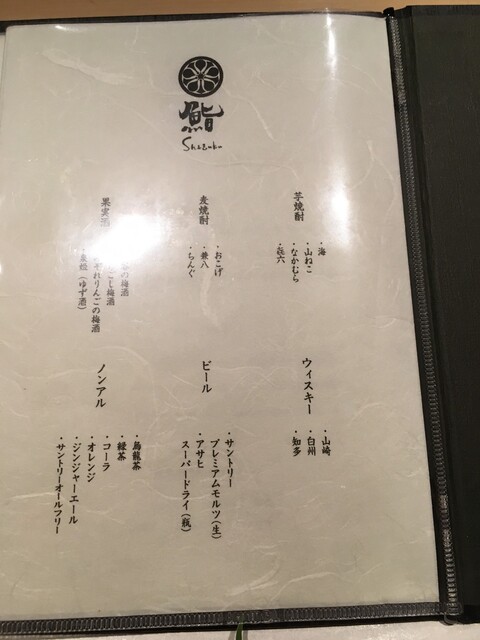 鮨
Shizuku
芋焼酎
・海
・山ねこ
・なかむら
・㐂六
麦焼酎
・おこげ
・兼八
・らんぐ
果実酒
の梅酒
ごし梅酒
それりんごの梅酒
姫（ゆず酒）
ウィスキー
・山崎
・白州
・知多
ビール
・サントリー
プレミアムモルツ（生）
・アサヒ
スーパードライ（瓶）
ノンアル
・烏龍茶
・緑茶
・コーラ
・オレンジ
・ジンジャーエール
・サントリーオールフリー